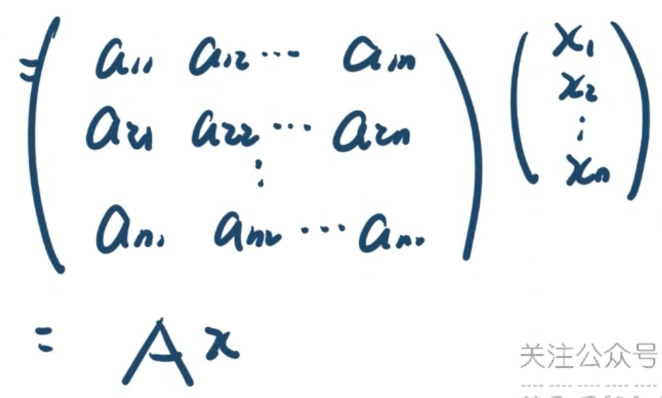 = ( a₁₁ a₁₂ ⋯ a₁ₙ ) ( x₁
a₂₁ a₂₂ ⋯ a₂ₙ x₂
⋮ ⋮
aₙ₁ aₙ₂ ⋯ aₙₙ xₙ )
= A x
关注公众号